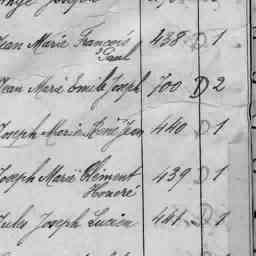 Jean Marie François 438 D 1
Paul
Jean Marie Emile Joseph 700 D 2
Joseph Marie René Jean 440 D 1
Joseph Marie Clément 439 D 1
Honoré
Jules Joseph Lucien 441 D 1